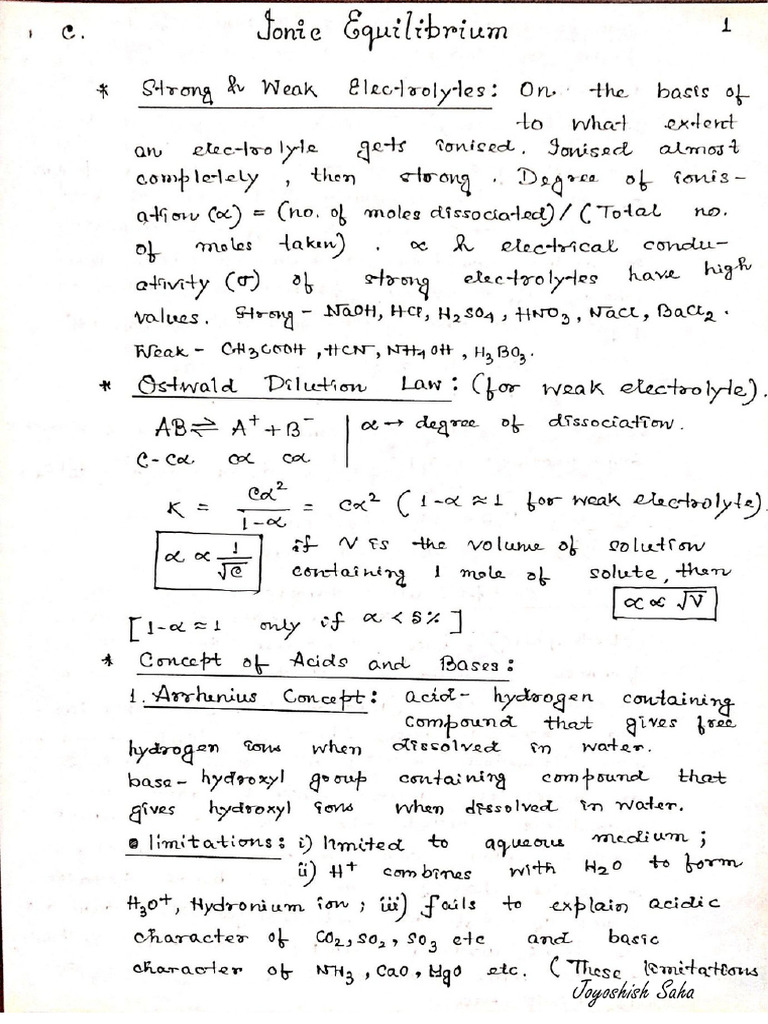 C. Ionic Equilibrium 1
* Strong & Weak Electrolytes: On the basis of
to what extent
an electrolyte gets ionised. Ionised almost
completely, then strong. Degree of ionis-
ation (α) = (no. of moles dissociated)/(Total no.
of moles taken). α & electrical condu-
ativity (σ) of strong electrolytes have high
values. Strong - NaOH, HCl, H₂SO₄, HNO₃, NaCl, BaCl₂.
Weak - CH₃COOH, HCN, NH₄OH, H₃BO₃.
* Ostwald Dilution Law: (for weak electrolyte).
AB ⇌ A⁺ + B⁻ | α → degree of dissociation.
C-Cα Cα Cα
K = Cα²/1-α = Cα² (1-α ≈ 1 for weak electrolyte)
α ∝ 1/√C if V is the volume of solution
containing 1 mole of solute, then
α ∝ √V
[1-α ≈ 1 only if α < 5%]
* Concept of Acids and Bases:
1. Arrhenius Concept: acid- hydrogen containing
compound that gives free
hydrogen ions when dissolved in water.
base- hydroxyl group containing compound that
gives hydroxyl ions when dissolved in water.
• limitations: i) limited to aqueous medium;
ii) H⁺ combines with H₂O to form
H₃O⁺, Hydronium ion; iii) fails to explain acidic
character of CO₂, SO₂, SO₃ etc and basic
character of NH₃, CaO, MgO etc. (These limitations
Joyoshish Saha